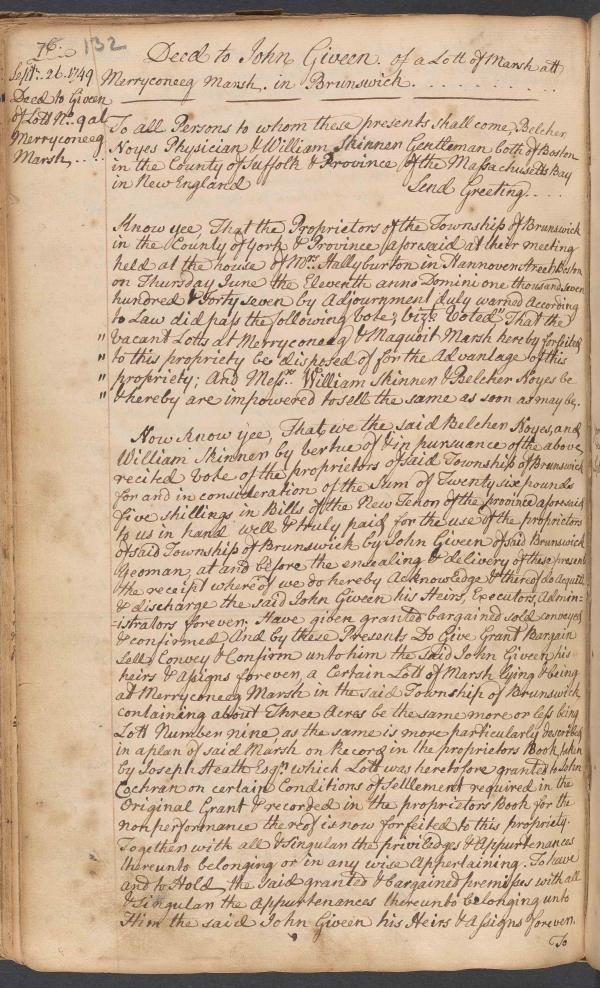 78. 132
Deed to John Giveen of a Lott of Marsh att
Merryconeeg Marsh. in Brunswick. . . . . . . . . .
Sept.r 26. 1749
Deed to Giveen
of Lott No. 9 at
Merryconeeg
Marsh. . . . .
To all Persons to whom these presents shall come, Belcher
Noyes Physician & William Skinner Gentleman both of Boston
in the County of Suffolk & Province of the Massachusetts Bay
in New England Send Greeting. . . .
Know yee, That the Proprietors of the Township of Brunswick
in the County of York & Province aforesaid at their meeting
held at the house of Mrs. Hallyburton in Hannover Street Boston
on Thursday June the Eleventh anno Domini one thousand seven
hundred & forty seven by Adjournment duly warned According
to Law did pass the following Vote, vizt. Voted, That the
" vacant Lotts at Merryconeeg & Maquoit Marsh hereby forfeited
" to this propriety be disposed of for the Advantage of this
" propriety; And Messrs. William Skinner & Belcher Noyes be
" & hereby are impowered to sell the same as soon as may be.
Now Know yee, That we the said Belcher Noyes, and
William Skinner by vertue of & in pursuance of the above
recited Vote of the proprietors of said Township of Brunswick
for and in consideration of the Sum of Twenty six pounds
five shillings in Bills of the New Tenor of the province aforesaid
to us in hand well & truly paid for the use of the proprietors
of said Township of Brunswick by John Giveen of said Brunswick
Yeoman, at and before the ensealing & delivery of these present
the receipt whereof we do hereby Acknowledge & thereof do Aquitt
& discharge the said John Giveen his Heirs, Executors, Admin=
=istrators forever. Have given granted bargained sold conveyed
& confirmed And by these Presents Do Give Grant Bargain
Sell, Convey & Confirm unto him the said John Giveen his
heirs & Assigns forever, a Certain Lott of Marsh lying & being
at Merryconeeg Marsh in the said Township of Brunswick
containing about Three Acres be the same more or less being
Lott Number nine, as the same is more particularly described
in a plan of said Marsh on Record in the proprietors Book taken
by Joseph Heath Esqr. which Lott was heretofore granted to John
Cochran on certain Conditions of Settlement required in the
Original Grant & recorded in the proprietors Book for the
nonperformance thereof is now forfeited to this propriety.
Together with all & Singular the priviledges & Appurtenances
thereunto belonging or in any wise Appertaining. To have
and to Hold, the said granted & bargained premisses with all
& Singular the Appurtenances thereunto belonging unto
Him the said John Giveen his Heirs & Assigns forever.
To